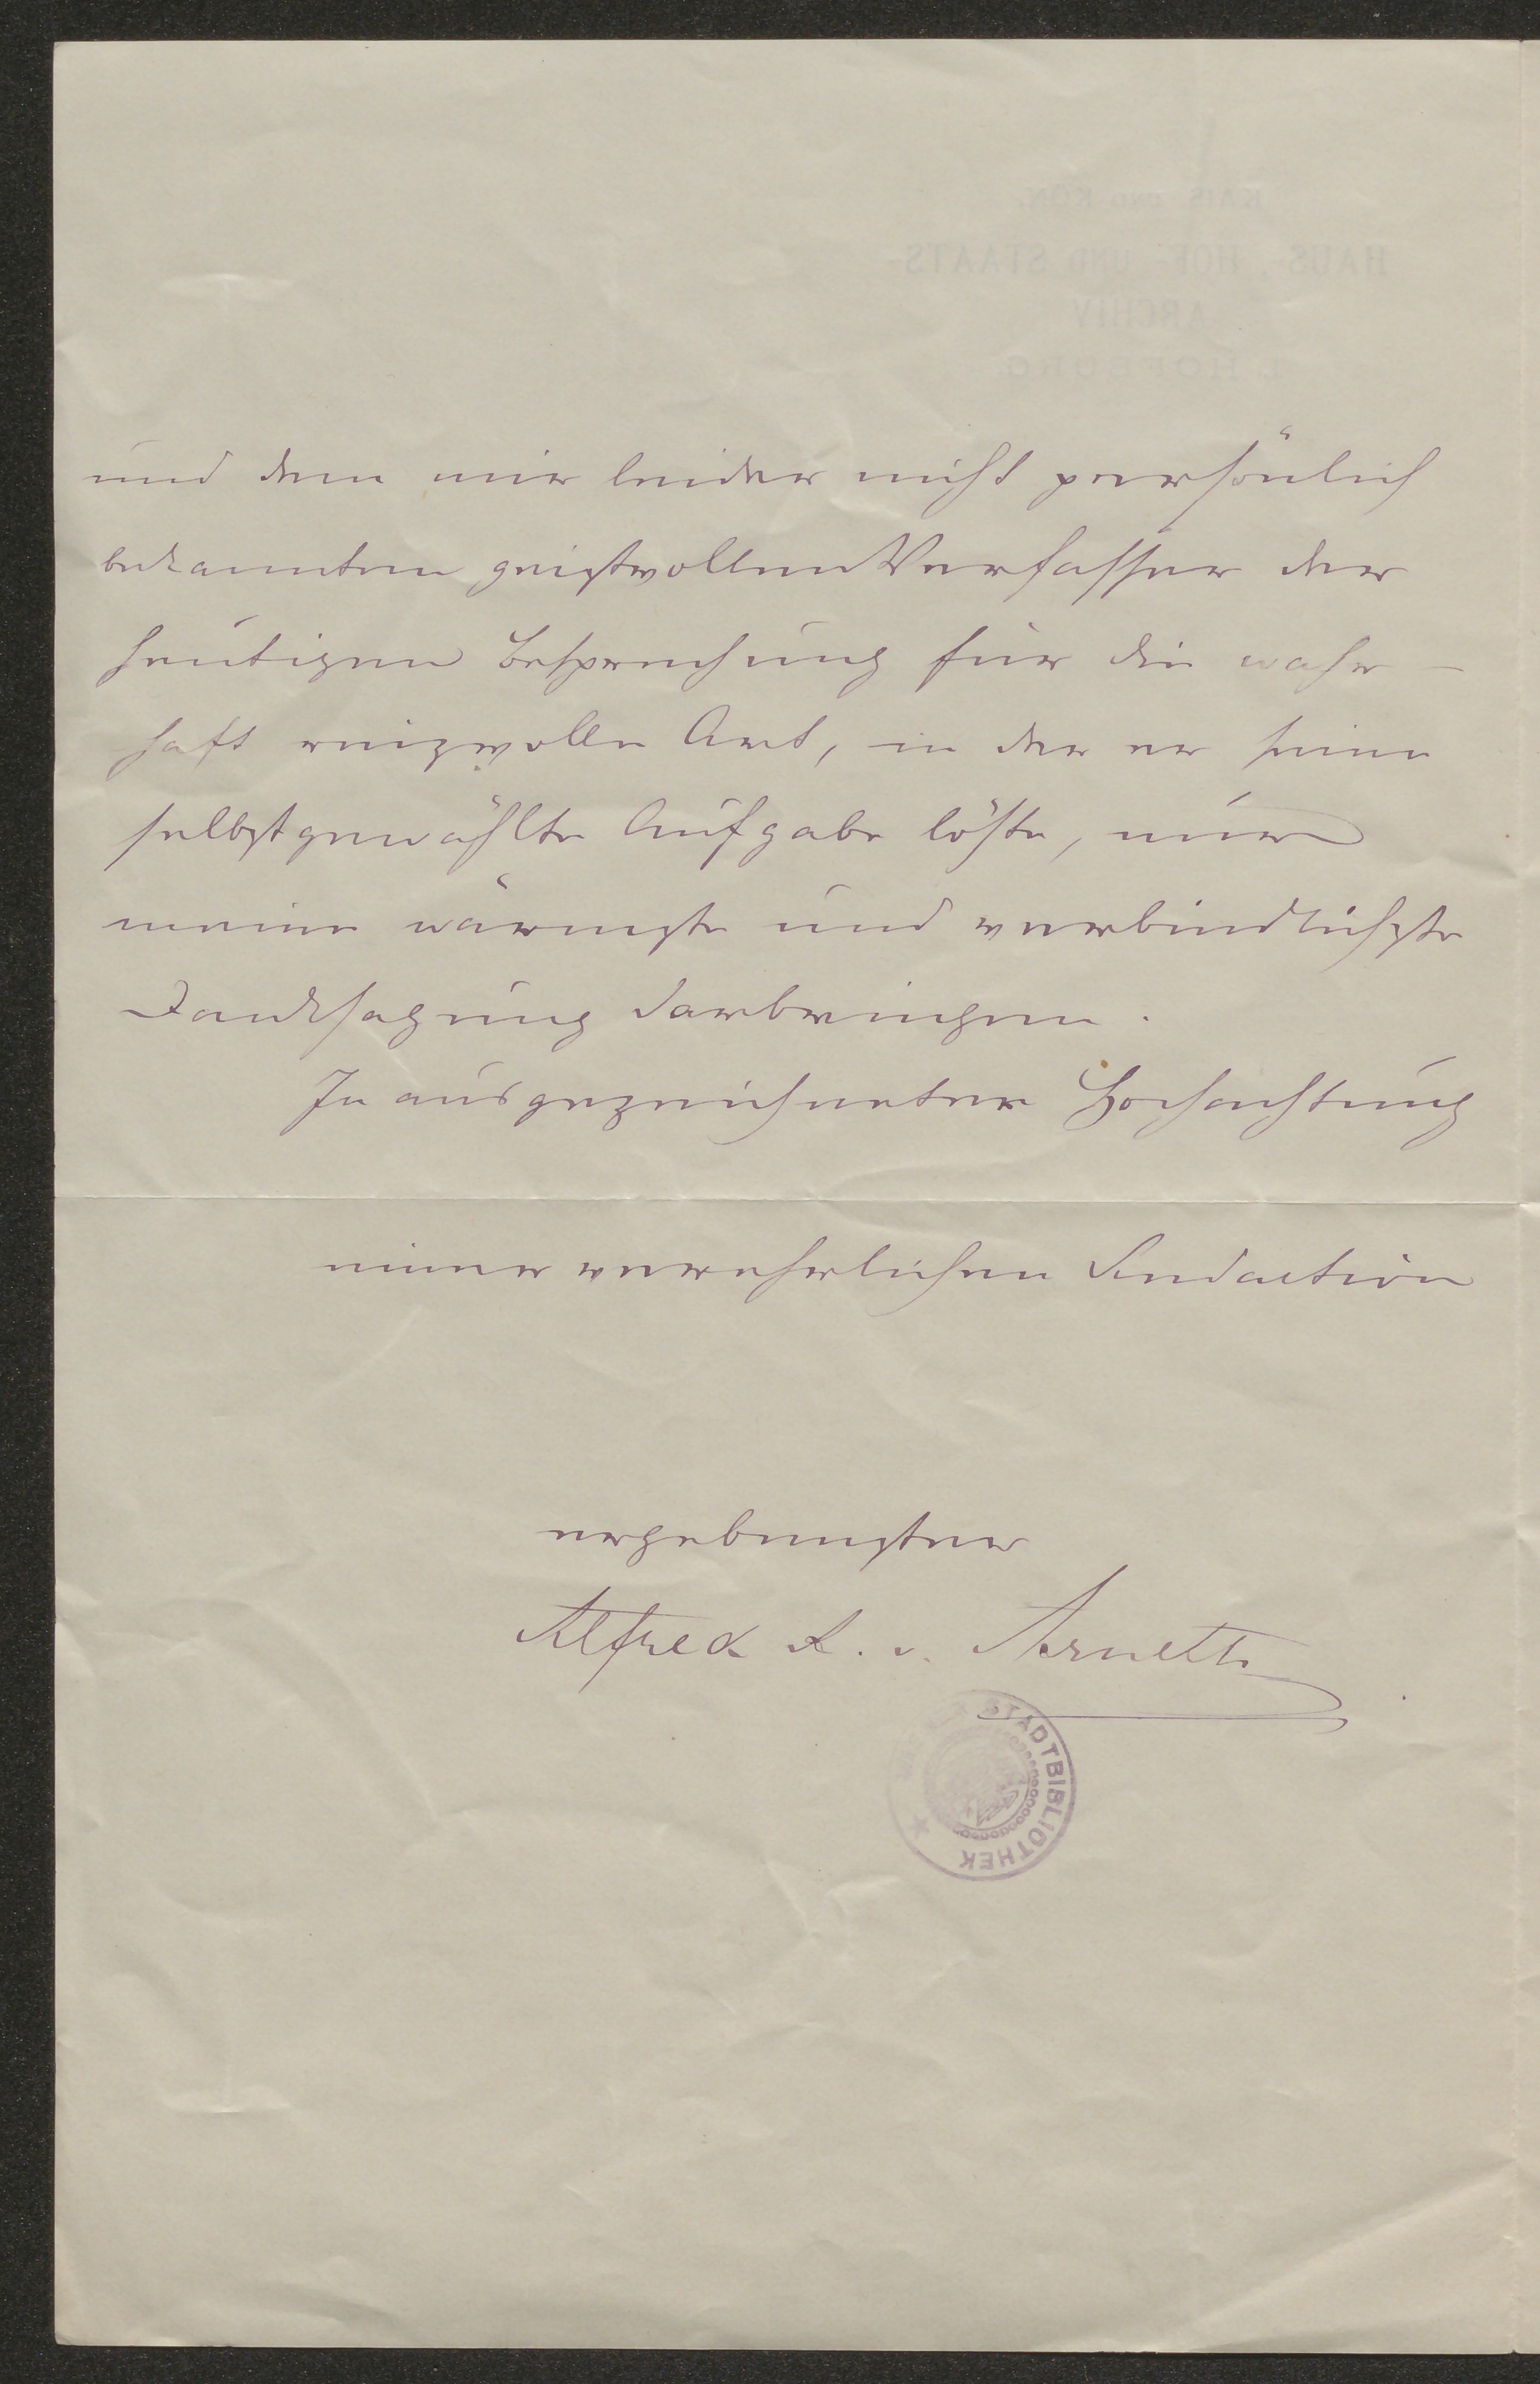 KAIS. UND KÖN.
HAUS-, HOF- UND STAATS-
ARCHIV
I. HOFBURG
und dem mir leider nicht persönlich
bekannten geistvollen Verfasser der
heutigen Besprechung für die wahr-
haft reizvolle Art, in der er seine
selbstgewählte Aufgabe löste, nur
meine wärmste und verbindlichste
Danksagung darbringen.
In ausgezeichneter Hochachtung
einer verehrlichen Redaction
ergebenster
Alfred R. v. Arneth
STADTBIBLIOTHEK